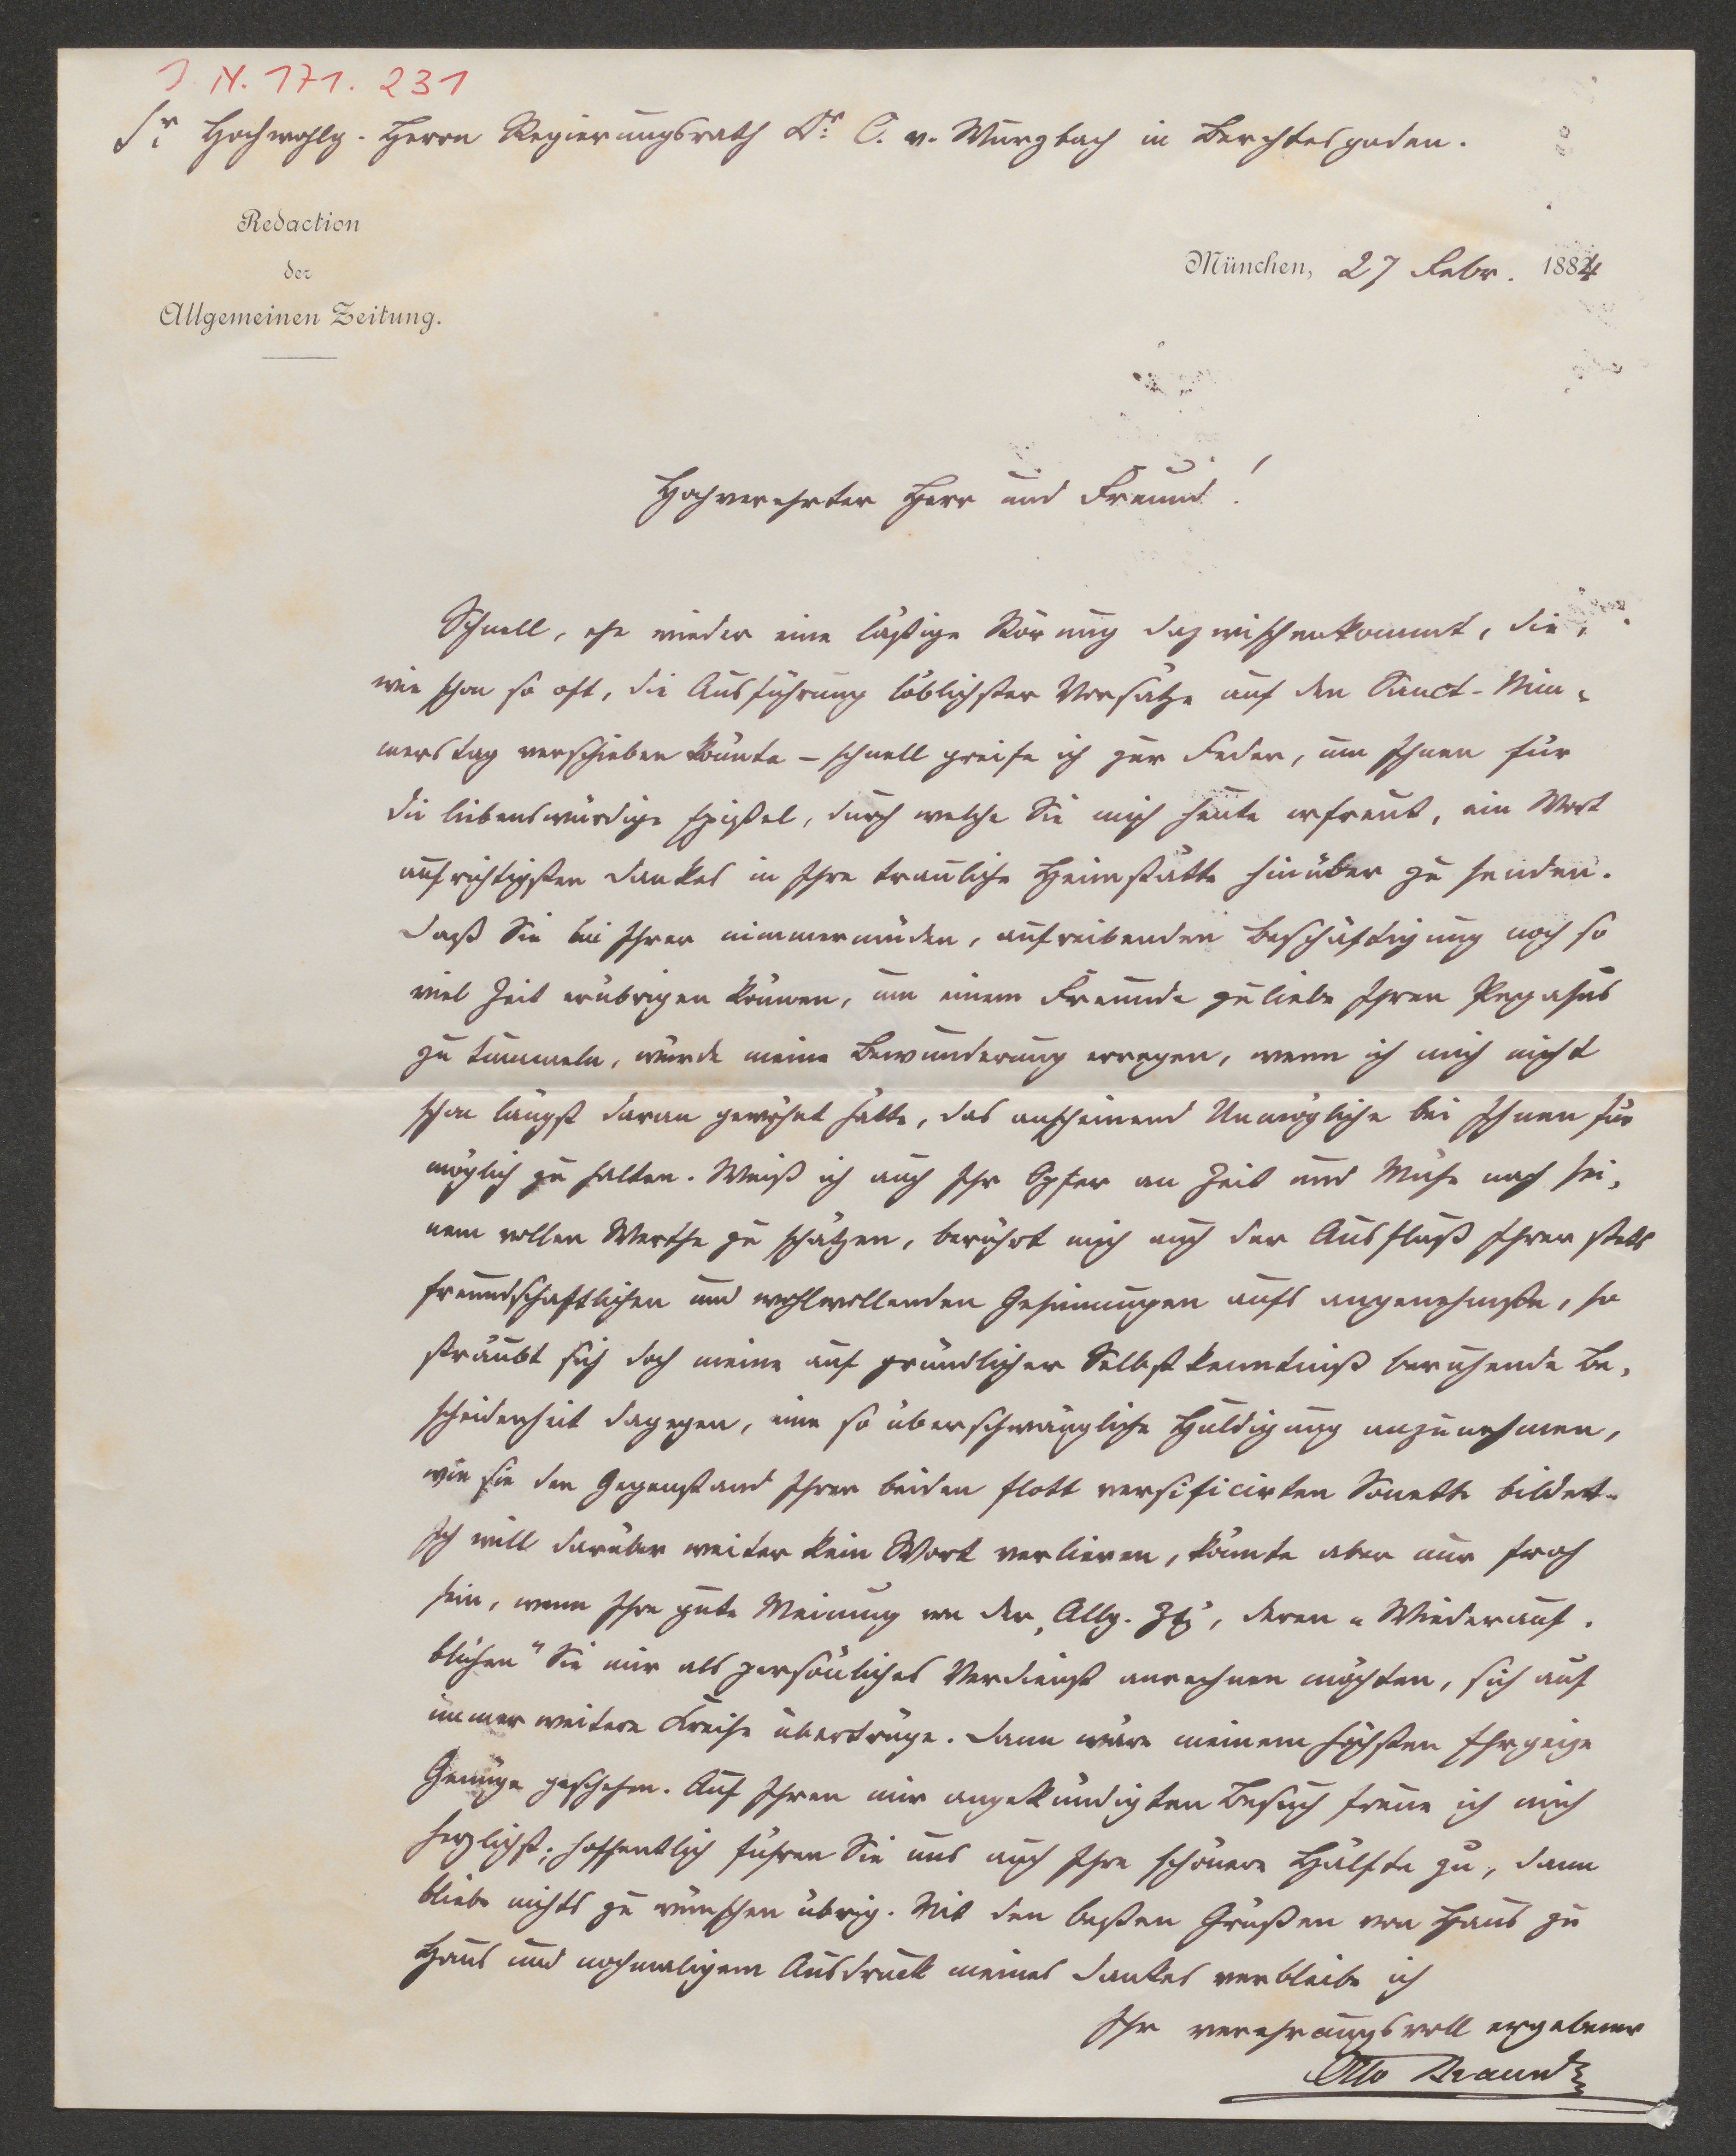 J. N. 171. 231
Sr Hochwohlg. Herrn Regierungsrath Dr. C. v. Wurzbach in Berchtesgaden.
Redaction
der
Allgemeinen Zeitung.
München, 27 Febr. 1884
Hochverehrter Herr und Freund!
Schnell, ehe wieder eine läßige Störung dazwischenkommt, die,
wie schon so oft, die Ausführung löblichster Vorsätze auf den Sanct-Nim-
merstag verschieben könnte – schnell greife ich zur Feder, um Ihnen für
die liebenswürdige Epistel, durch welche Sie mich heute erfreut, ein Wort
aufrichtigsten Dankes in Ihre trauliche Heimstätte hinüber zu senden.
Daß Sie bei Ihrer nimmermüden, aufreibenden Beschäftigung noch so
viel Zeit erübrigen können, um einem Freunde zuliebe Ihren Pegasus
zu tummeln, würde meine Bewunderung erregen, wenn ich mich nicht
schon längst daran gewöhnt hätte, das anscheinend Unmögliche bei Ihnen für
möglich zu halten. Weiß ich auch Ihr Opfer an Zeit und Mühe nach sei-
nem vollen Werthe zu schätzen, berührt mich auch der Ausfluß Ihrer stets
freundschaftlichen und wohlwollenden Gesinnungen aufs angenehmste, so
sträubt sich doch meine auf gründlicher Selbstkenntniß beruhende Be-
scheidenheit dagegen, eine so überschwängliche Huldigung anzunehmen,
wie sie den Gegenstand Ihrer beiden flott versificirten Sonette bildet.
Ich will darüber weiter kein Wort verlieren, könnte aber nur froh
sein, wenn Ihre gute Meinung von der „Allg. Ztg", deren „Wiederauf-
blühen" Sie mir als persönliches Verdienst anrechnen möchten, sich auf
immer weitere Kreise übertrüge. Dann wäre meinem höchsten Ehrgeize
Genüge geschehen. Auf Ihren mir angekündigten Besuch freue ich mich
herzlichst; hoffentlich führen Sie uns auch Ihre schönere Hälfte zu, dann
bliebe nichts zu wünschen übrig. Mit den besten Grüßen von Haus zu
Haus und nochmaligem Ausdruck meines Dankes verbleibe ich
Ihr verehrungsvoll ergebener
Otto Braun